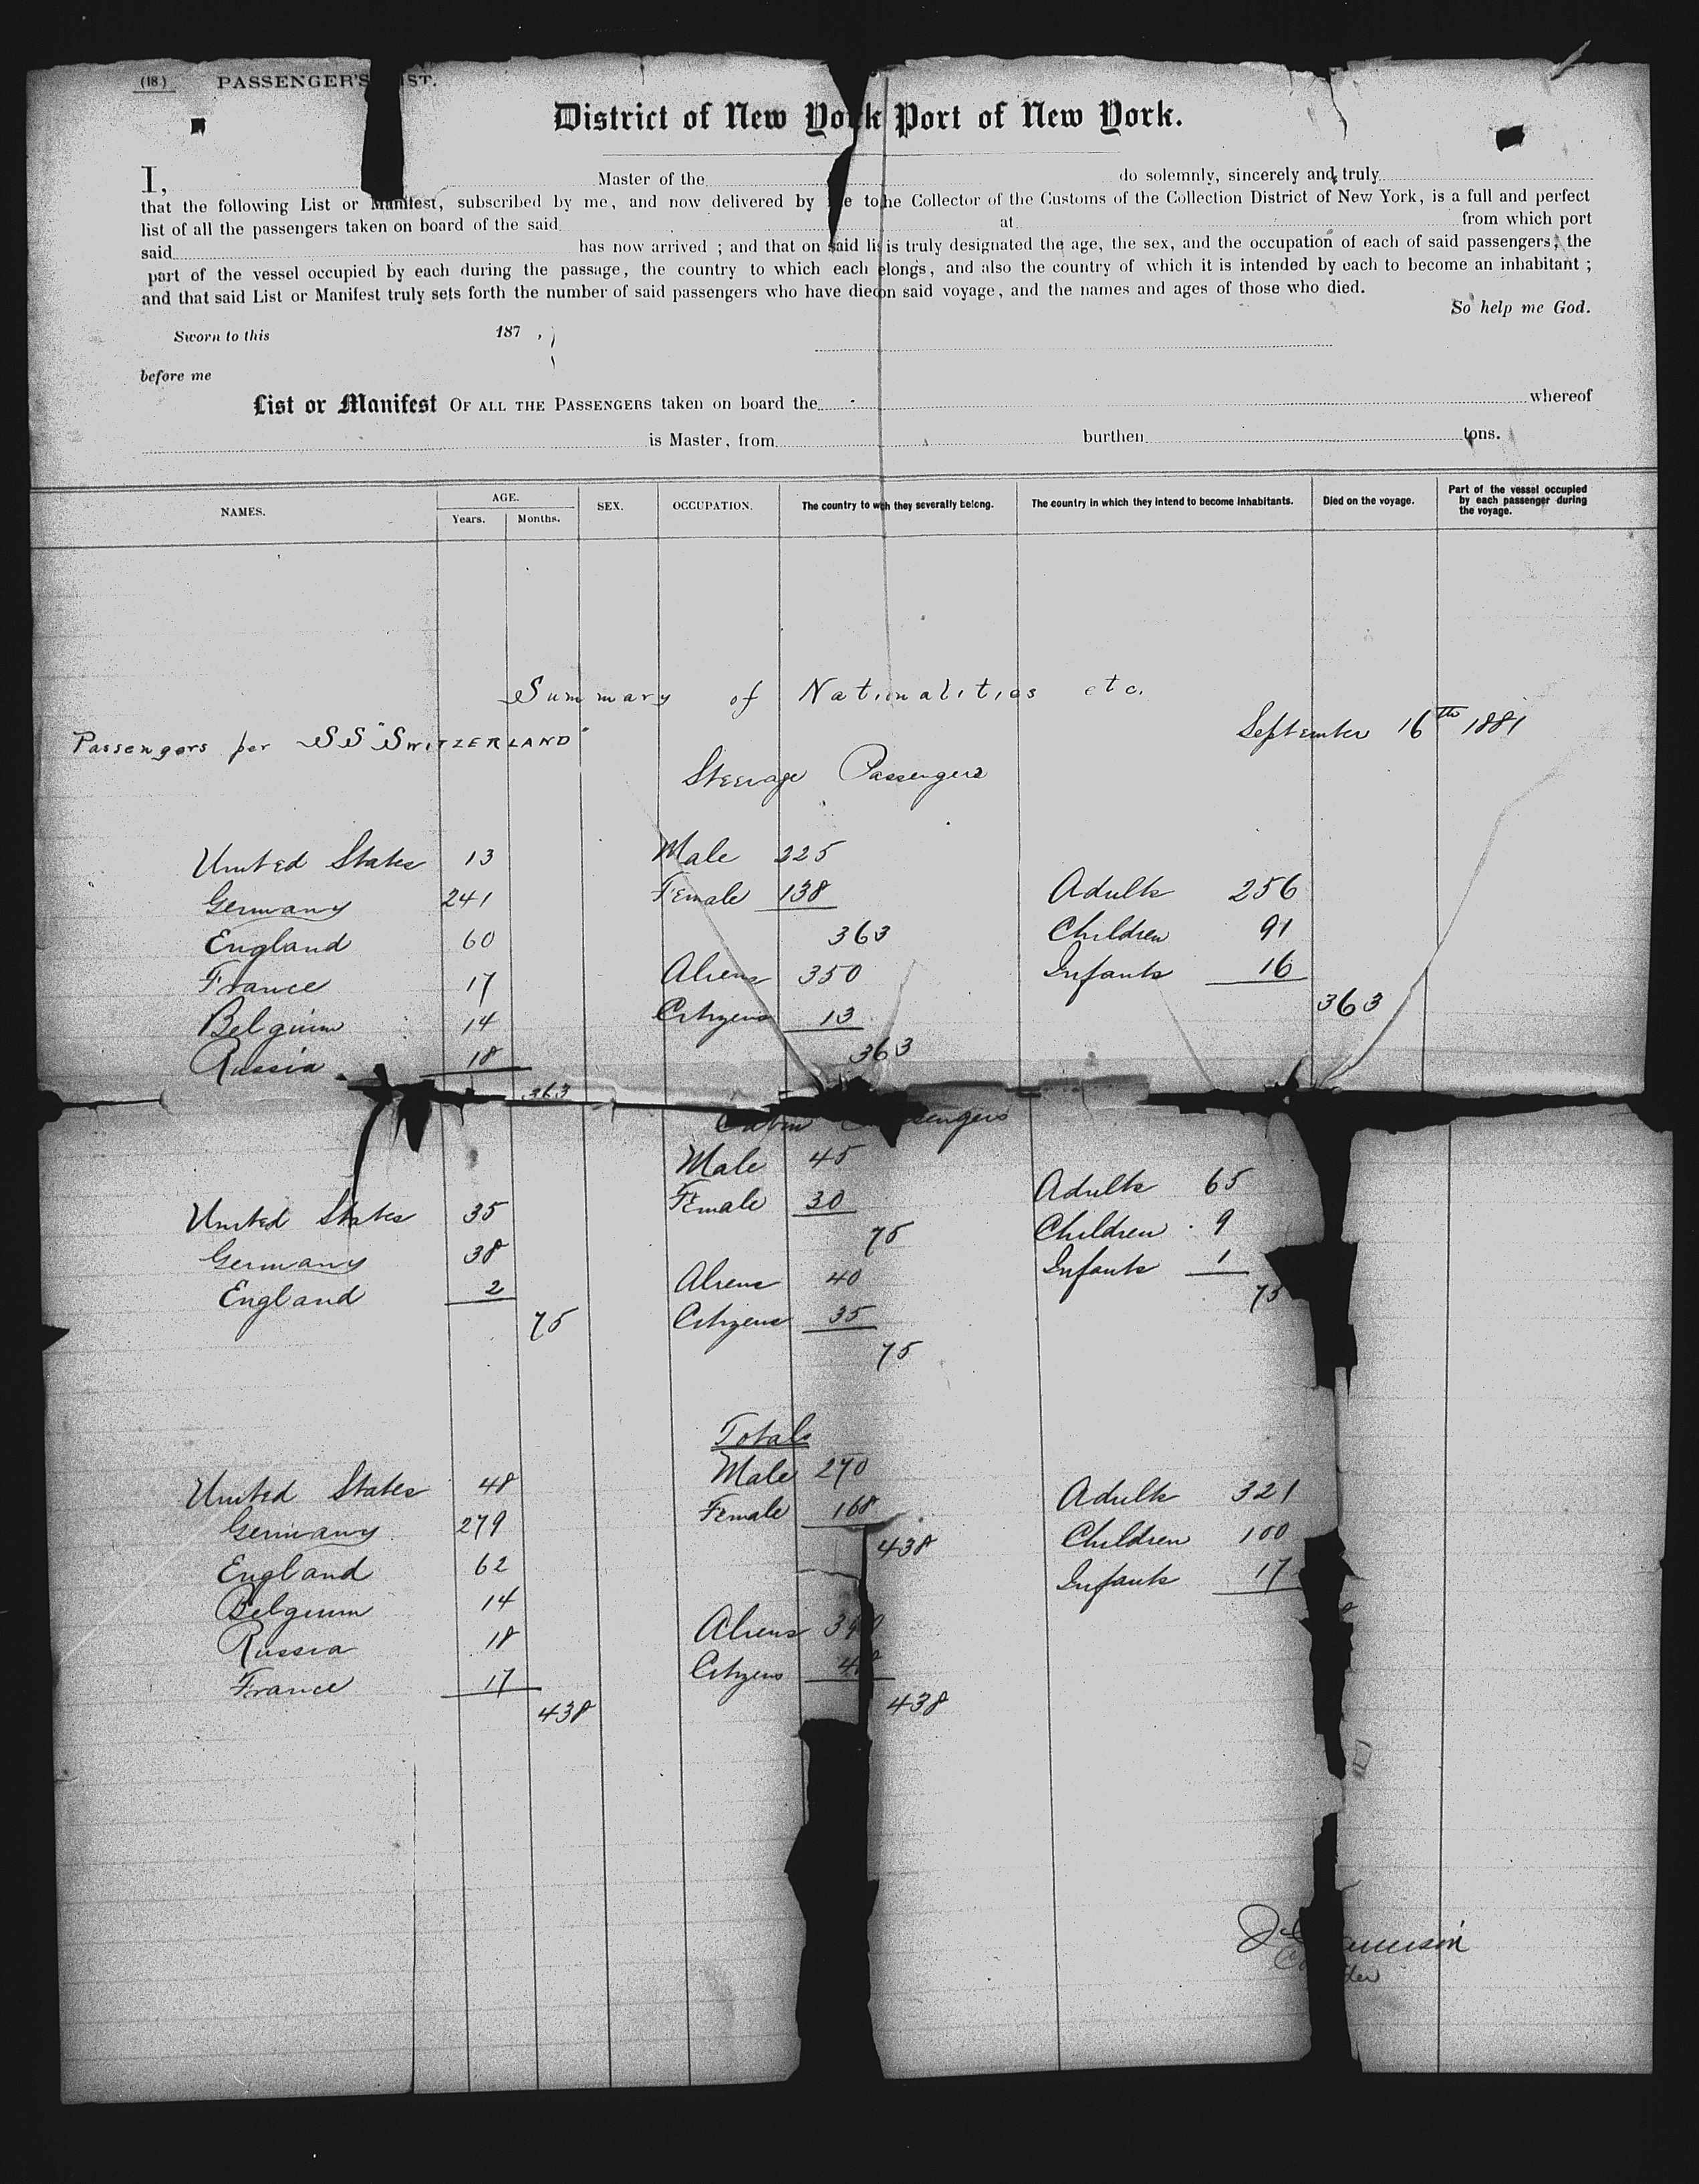 (18.) PASSENGER'S IST.
District of New York Port of New York.
I, Master of the do solemnly, sincerely and truly
that the following List or Manifest, subscribed by me, and now delivered by me to he Collector of the Customs of the Collection District of New York, is a full and perfect
list of all the passengers taken on board of the said at from which port
said has now arrived ; and that on said lis is truly designated the age, the sex, and the occupation of each of said passengers, the
part of the vessel occupied by each during the passage, the country to which each elongs, and also the country of which it is intended by each to become an inhabitant ;
and that said List or Manifest truly sets forth the number of said passengers who have died on said voyage, and the names and ages of those who died.
So help me God.
Sworn to this 187 ,
before me
List or Manifest OF ALL THE PASSENGERS taken on board the whereof
is Master, from burthen tons.
NAMES. AGE. Years. Months. SEX. OCCUPATION. The country to wh they severally belong. The country in which they intend to become inhabitants. Died on the voyage. Part of the vessel occupied by each passenger during the voyage.
Summary of Nationalities etc.
Passengers per SS "SWITZERLAND" September 16th 1881
Steerage Passengers
United States 13 Male 225
Germany 241 Female 138 Adults 256
England 60 363 Children 91
France 17 Aliens 350 Infants 16
Belgium 14 Citizens 13 363
Russia 18 363
363
Cabin sengers
Male 45
United States 35 Female 30 Adults 65
Germany 38 75 Children 9
England 2 Aliens 40 Infants 1
75 Citizens 35 75
75
Totals
United States 48 Male 270 Adults 321
Germany 279 Female 168 Children 100
England 62 438 Infants 17
Belgium 14
Russia 18 Aliens 390
France 17 Citizens 48
438 438